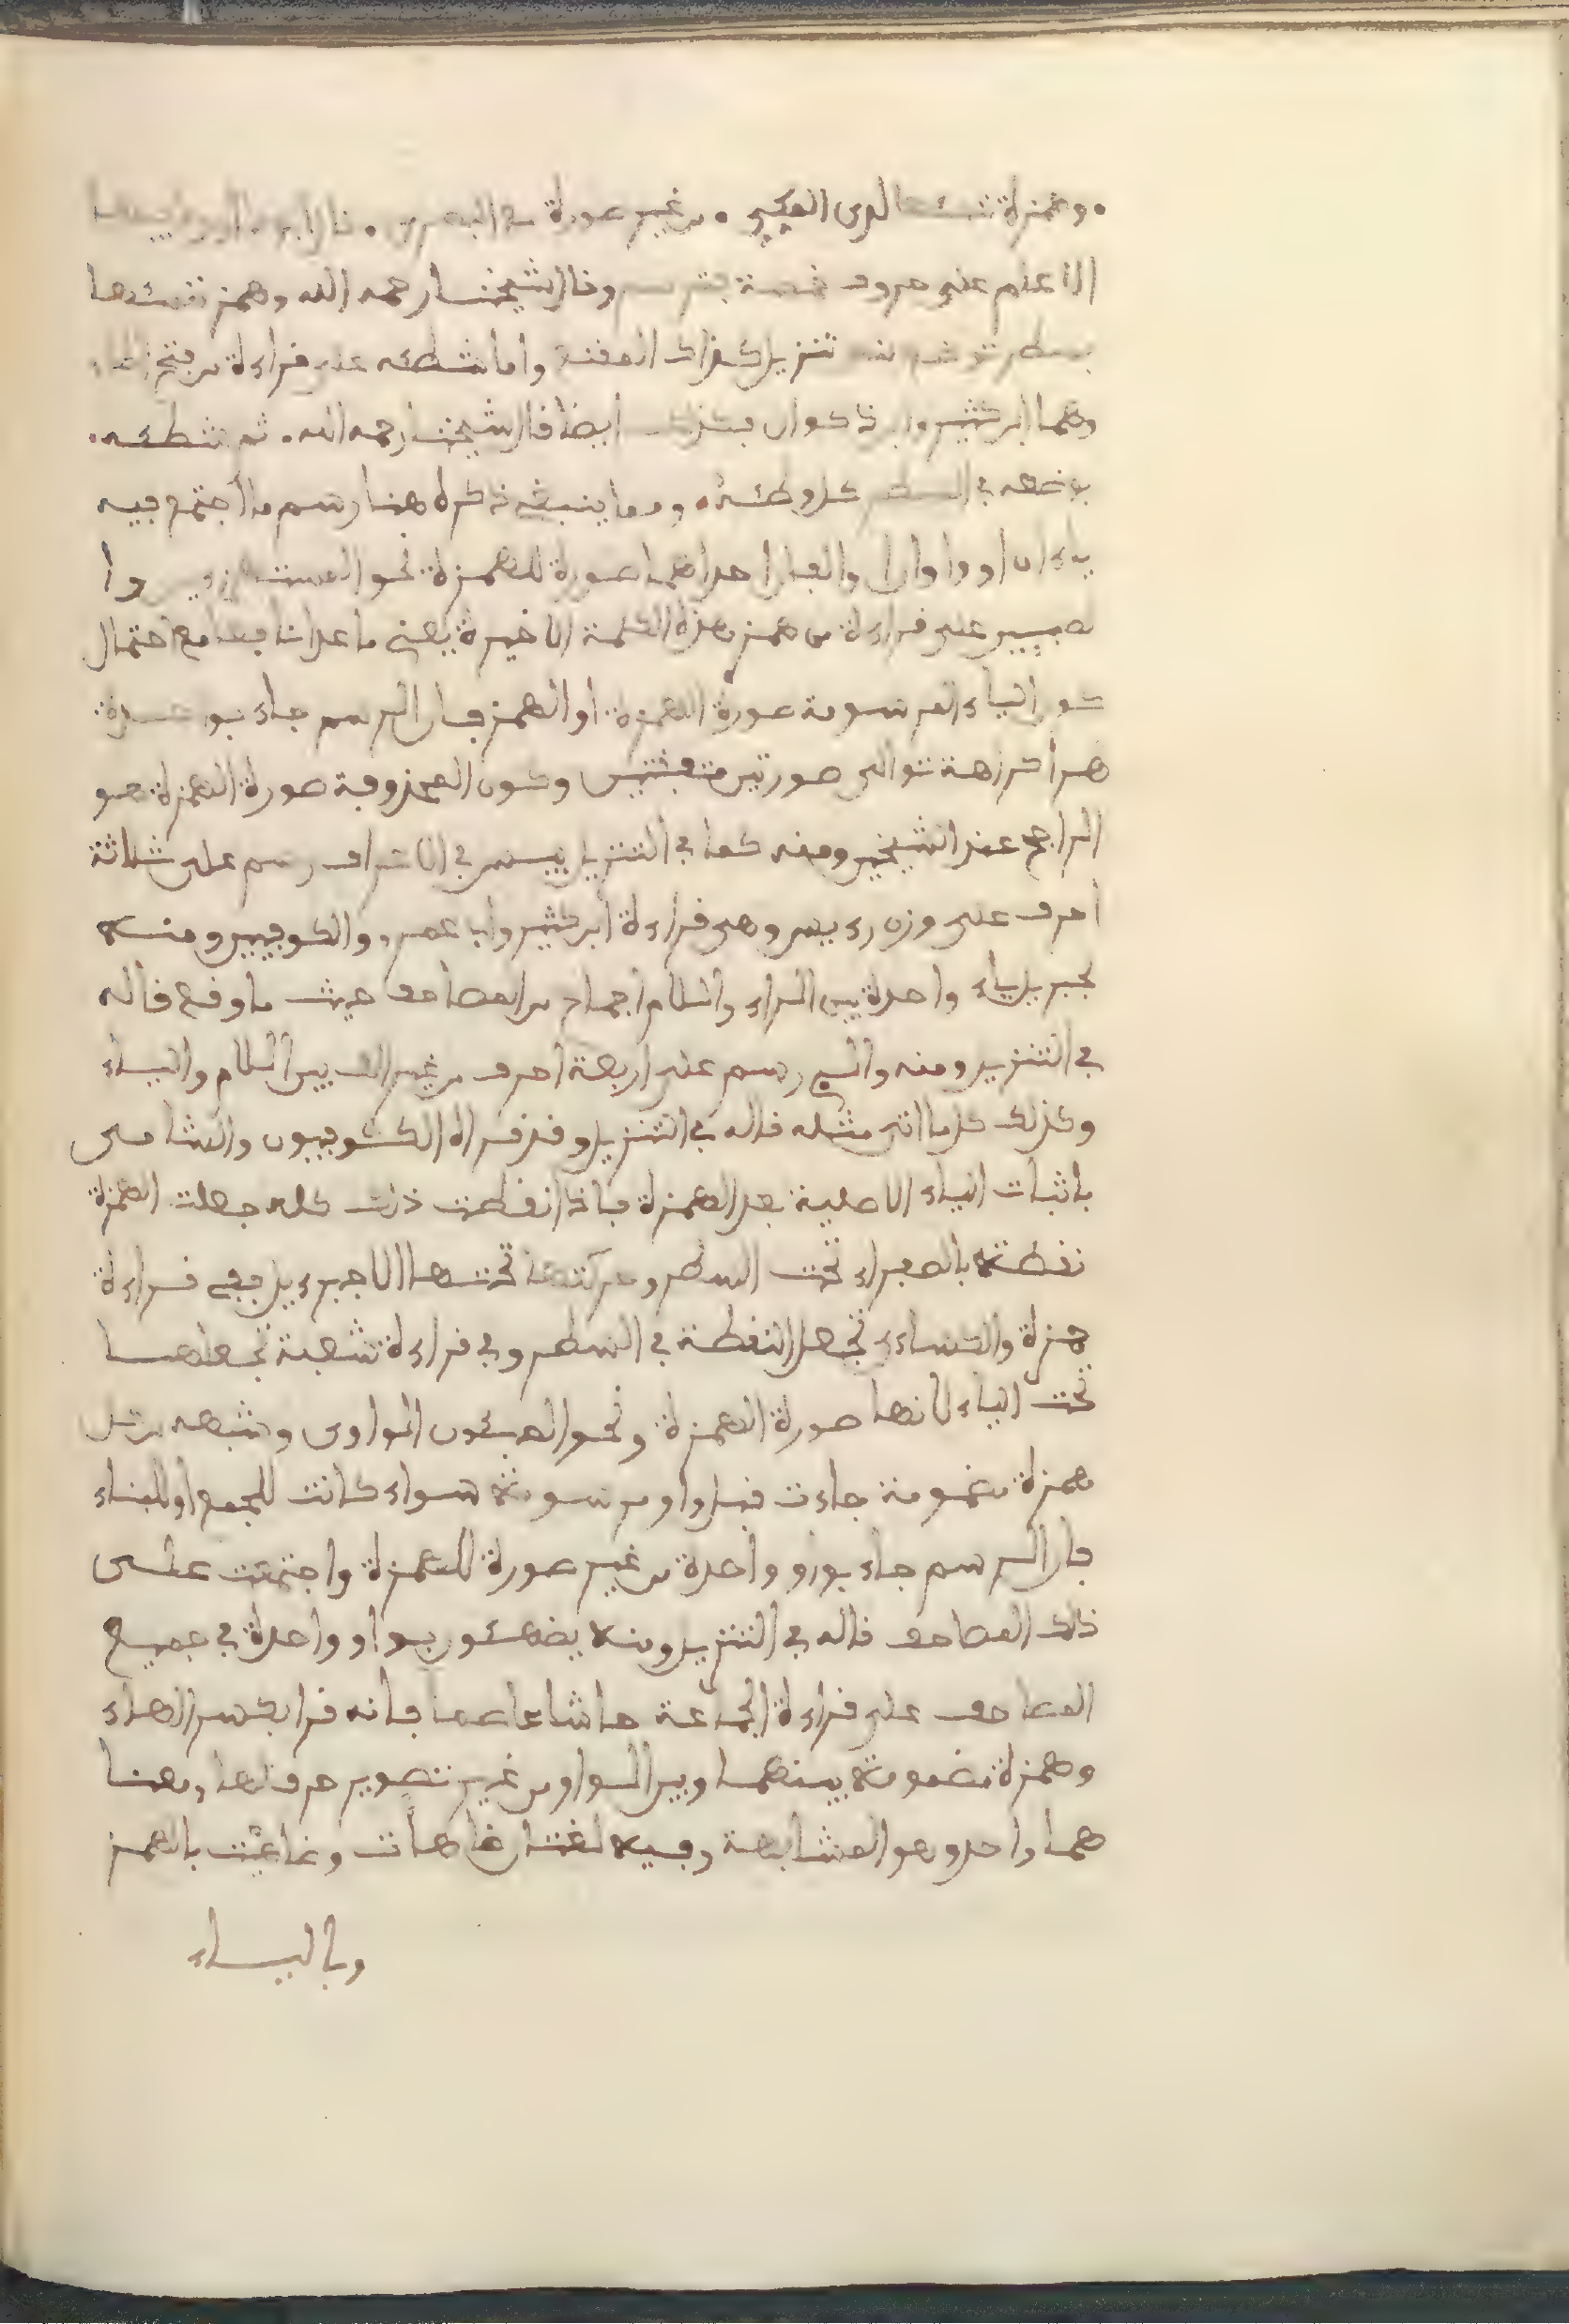 وهمزة تنشئها لدى المكي من غير صورة مع البصري
الاعلم على حروف خمسة وقال شيخنا رحمه الله وهمز تنشئها
تنزيل كذاك المفننة واما شطئه على قراءة من فتح
وهما ابن كثير وابن ذكوان فكذلك ايضا قال شيخنا رحمه الله ثم شطئه
بوضعه في السطر كل وطئه ومما ينبغي ذكره هنا رسم ما اجتمع فيه
ياءان او واوان والفان احداهما صورة للهمزة نحو المستهزءين وا
لنبيين على قراءة من همز هذه الكلمة الاخيرة يعني ما عدا نافعا مع احتمال
كون الياء المرسومة صورة الهمزة او الهمز فان الرسم جاء بواحدة
هرا كراهة توالي صورتين متفقتين وكون المحذوفة صورة الهمزة هو
الراجح عند الشيخين ومنه كما في التنزيل بيس في الاعراف رسم على ثلاثة
احرف على وزن رءيس وهي قراءة ابن كثير وابي عمرو والكوفيين ومنه
جبريل بياء واحدة بين الراء واللام اجماع من المصاحف حيث ما وقع قاله
في التنزيل ومنه والئ رسم على اربعة احرف من غير الف بين اللام والياء
وكذلك كل ما اتى مثله قاله في التنزيل وقد قراه الكوفيون والشامي
باثبات الياء الاصلية بعد الهمزة فاذا نقطت ذلك كله جعلت الهمزة
نقطة بالصفراء تحت السطر وحركتها تحتها الا جبرءيل ففي قراءة
حمزة والكساءي تجعل النقطة في السطر وفي قراءة شعبة تجعلها
تحت الياء لانها صورة الهمزة ونحو الصبئون الواوى وشبهه من كل
همزة مضمومة جاءت قبل واو مرسومة سواء كانت للجمع او للبناء
فان الرسم جاء بواو واحدة من غير صورة للهمزة واجتمعت على
ذلك المصاحف قاله في التنزيل ومنه يضهئون بواو واحدة في جميع
المصاحف على قراءة الجماعة حاشا عاصما فانه قرا بكسر الهاء
وهمزة مضمومة بينهما وبين الواو من غير تصوير حرف لها ومعنا
هما واحد وهو المشابهة وفيه لغتان ضاهات وضاهيت بالهمز
وبالياء